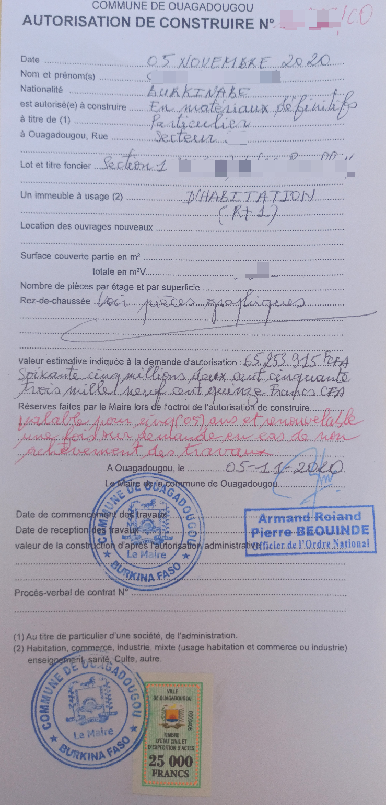 COMMUNE DE OUAGADOUGOU
AUTORISATION DE CONSTRUIRE N° /CO
Date 05 NOVEMBRE 2020
Nom et prénom(s)
Nationalité BURKINABE
est autorisé(e) à construire En matériaux définitifs
à titre de (1) Particulier
à Ouagadougou, Rue Secteur
Lot et titre foncier Section 1
Un immeuble à usage (2) D'HABITATION
(R+1)
Location des ouvrages nouveaux
Surface couverte partie en m²
totale en m²V
Nombre de pièces par étage et par superficie
Rez-de-chaussée Voir pièces graphiques
valeur estimative indiquée à la demande d'autorisation : 65.253.915 FCFA
Soixante cinq millions deux cent cinquante
Trois mille neuf cent quinze Francs CFA
Réserves faites par la Maire lors de l'octroi de l'autorisation de construire
valable pour cinq (05) ans et renouvelable
une fois sur demande en cas de non
achèvement des travaux
A Ouagadougou, le 05-11-2020
Le Maire de la commune de Ouagadougou
Date de commencement des travaux
Date de reception des travaux
valeur de la construction d'après l'autorisation administrative
COMMUNE DE OUAGADOUGOU
Le Maire
BURKINA FASO
Armand Roland
Pierre BEOUINDE
Officier de l'Ordre National
Procès-verbal de contrat N°
(1) Au titre de particulier d'une société, de l'administration.
(2) Habitation, commerce, industrie, mixte (usage habitation et commerce ou industrie)
enseignement, santé, Culte, autre.
COMMUNE DE OUAGADOUGOU
Le Maire
BURKINA FASO
VILLE
DE OUAGADOUGOU
TIMBRE
D'ETAT CIVIL ET
D'EXPEDITION D'ACTES
25 000
FRANCS